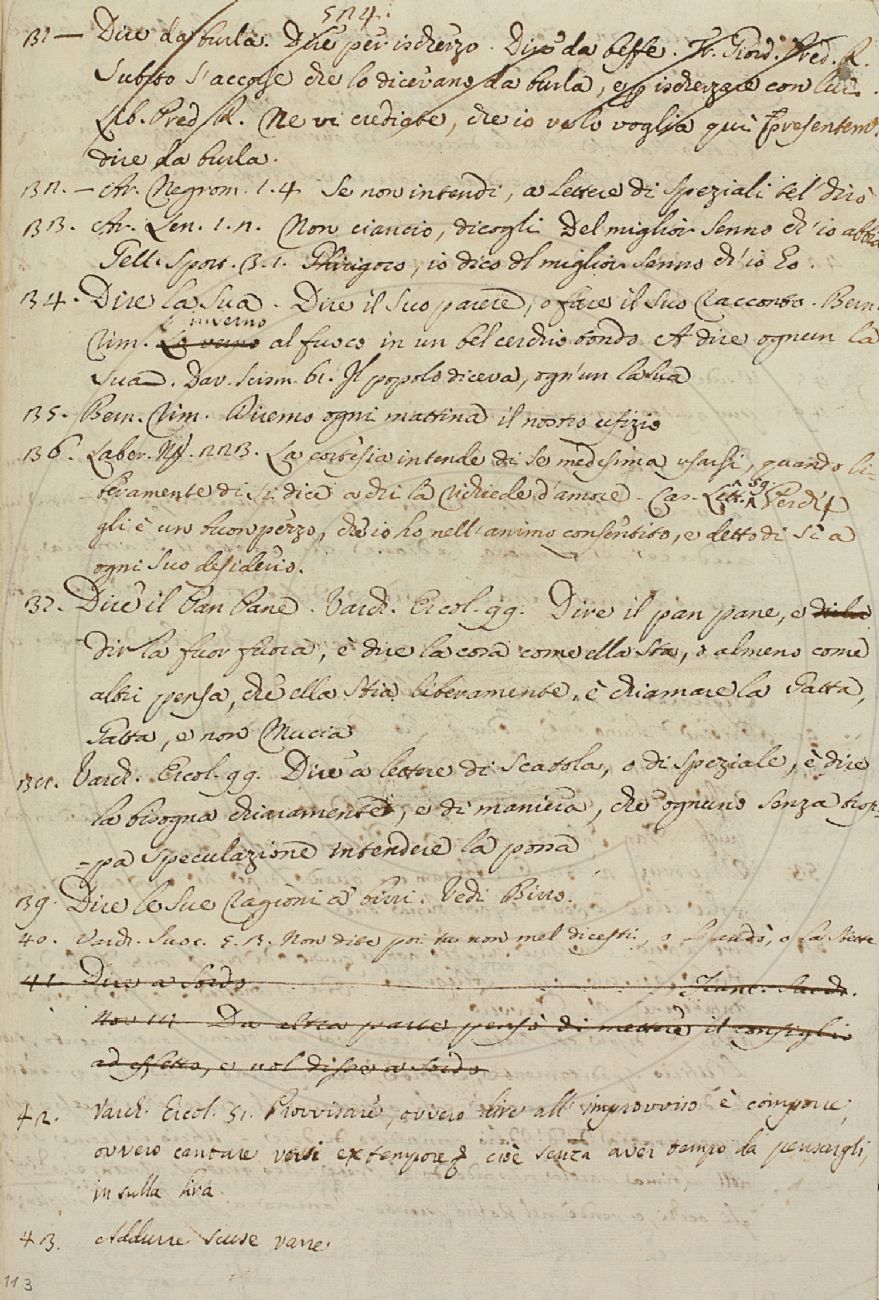 524.
131 — Dire da burla. Dire per ischerzo. Dire da beffe. Fr. Giord. Pred. R.
Subito s'accorse che lo dicevano da burla, e p ischerzare con lui.
Lib. Pred. R. Ne vi crediate, che io ve lo voglia qui presentemte.
dire da burla.
132. — Ar. Negrom. 1. 4 Se non intendi, a lettere di speziali tel dirò
133. Ar. Len. 1. 2. Non ciancio, dicogli Del miglior senno ch'io abbia
Gell. Sport. 3. 1. Ghirigoro, io dico del miglior senno ch'io ho.
134. Dire la Sua. Dire il suo parere, o fare il suo racconto. Bern.
inverno
Rim. al fuoco in un bel cerchio tondo A dire ognun la
Sua. Dav. Scism. 61. Il popolo diceva, ogn'un la sua
135. Bern. Rim. Diremo ogni mattina il nostro ufizio
136. Laber. 223. La cortesia intende di se medesima usarsi, quando li-
beramente di sì dice a chi la richiede d'amore. Car. Lett. Perch'e
gli è un buon pezzo, che io ho nell'animo consentito, e detto di sì a
ogni suo desiderio.
37. Dire il Pan Pane. Varch. Ercol. 99. Dire il pan pane, e
dir la fuor fuora, è dire la cosa come ella sta, o almeno come
altri pensa, che ella stia liberamente, è chiamare la Gatta,
Gatta, e non Mucia
138. Varch. Ercol. 99. Dire a lettere di scatola, o di speziale, è dire
la bisogna chiaramente, e di maniera, che ognuno senza trop-
-pa speculazione intendere la possa
139. Dire le sue ragioni a' birri. Vedi Birro.
40. Varch. Suoc. 5. 3. Non dire poi tu non mel dicesti, o la andò, o la stette
41. Dire a Sordo Franc. Sacch.
Nov 111 Da altra parte pensò di mettere il consiglio
ad effetto, e nol disse a sordo
42. Varch. Ercol. 51. Provvisare, ovvero dire all'improvviso è comporre,
ovvero cantare versi extempore, cioè senza aver tempo da pensargli,
in sulla lira.
43. Addurre scuse vane.
113